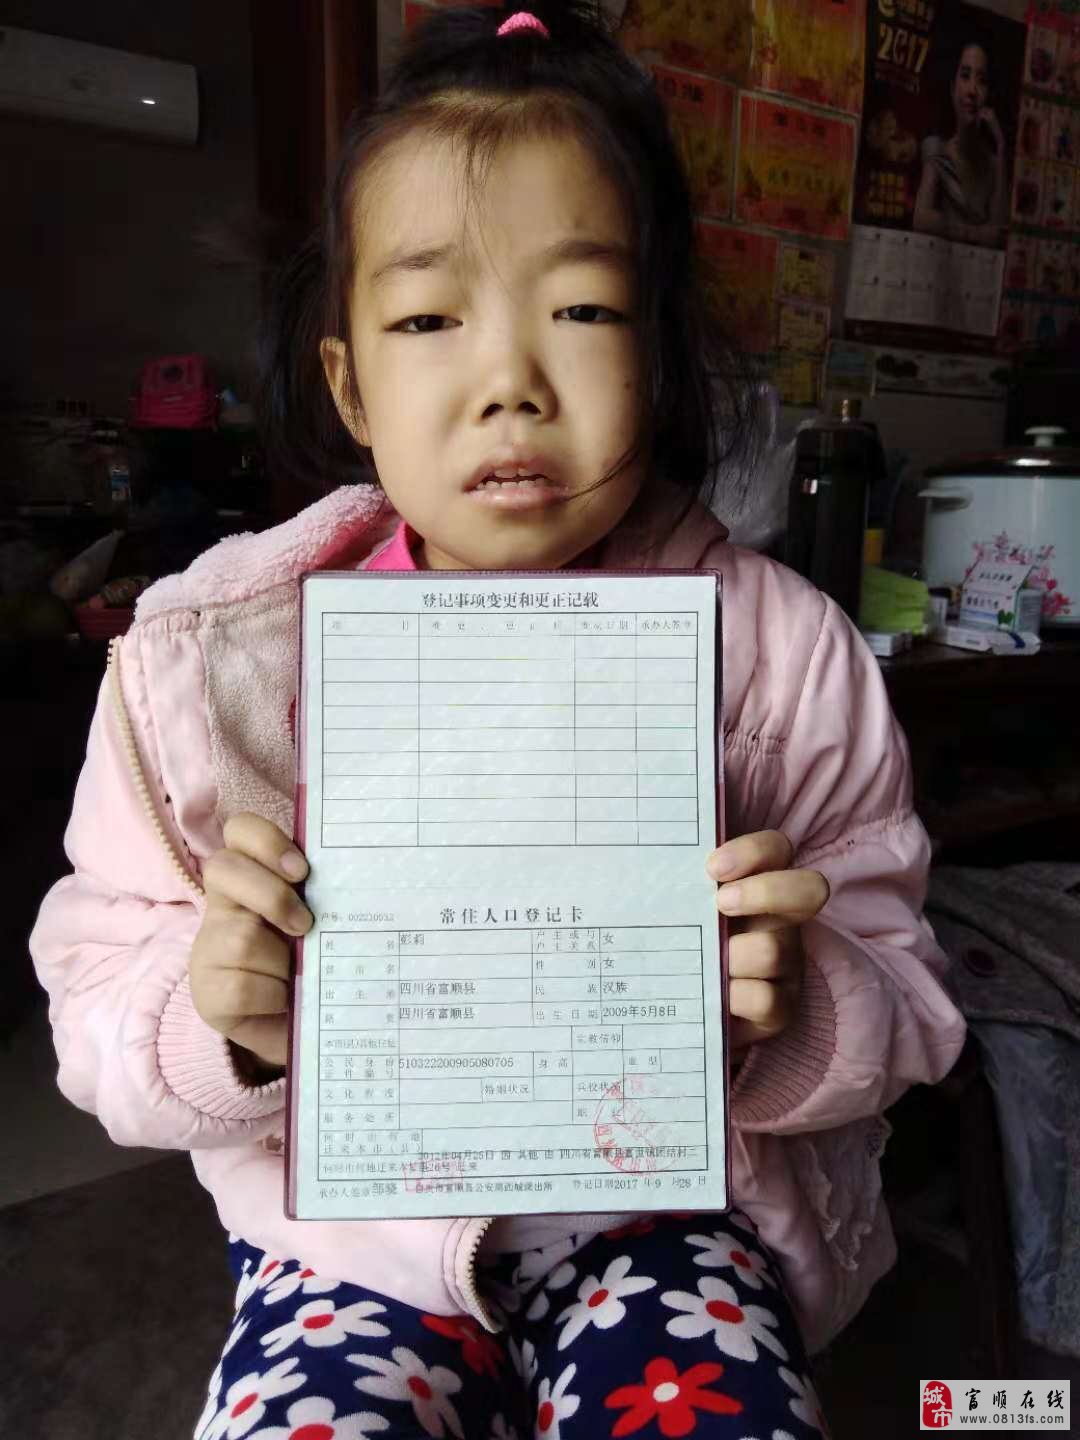 2017
登记事项变更和更正记载
项 目 变 更 、 更 正 后 变更日期 承办人签章
常住人口登记卡
姓 名 彭莉 户主或与户主关系 女
曾用名 性别 女
出生地 四川省富顺县 民族 汉族
籍贯 四川省富顺县 出生日期 2009年5月8日
本市(县)其他住址 宗教信仰
公民身份证件编号 510322200905080705 身高 血型
文化程度 婚姻状况 兵役状况
服务处所 职业
何时由何地迁来本市(县)
2012年04月25日 因 其他 由 四川省富顺县富世镇团结村二
何时由何地迁来本址
承办人签章 邹骁 自贡市富顺县公安局西城派出所 登记日期2017年9月28日
城市
富顺在线
www.0813fs.com